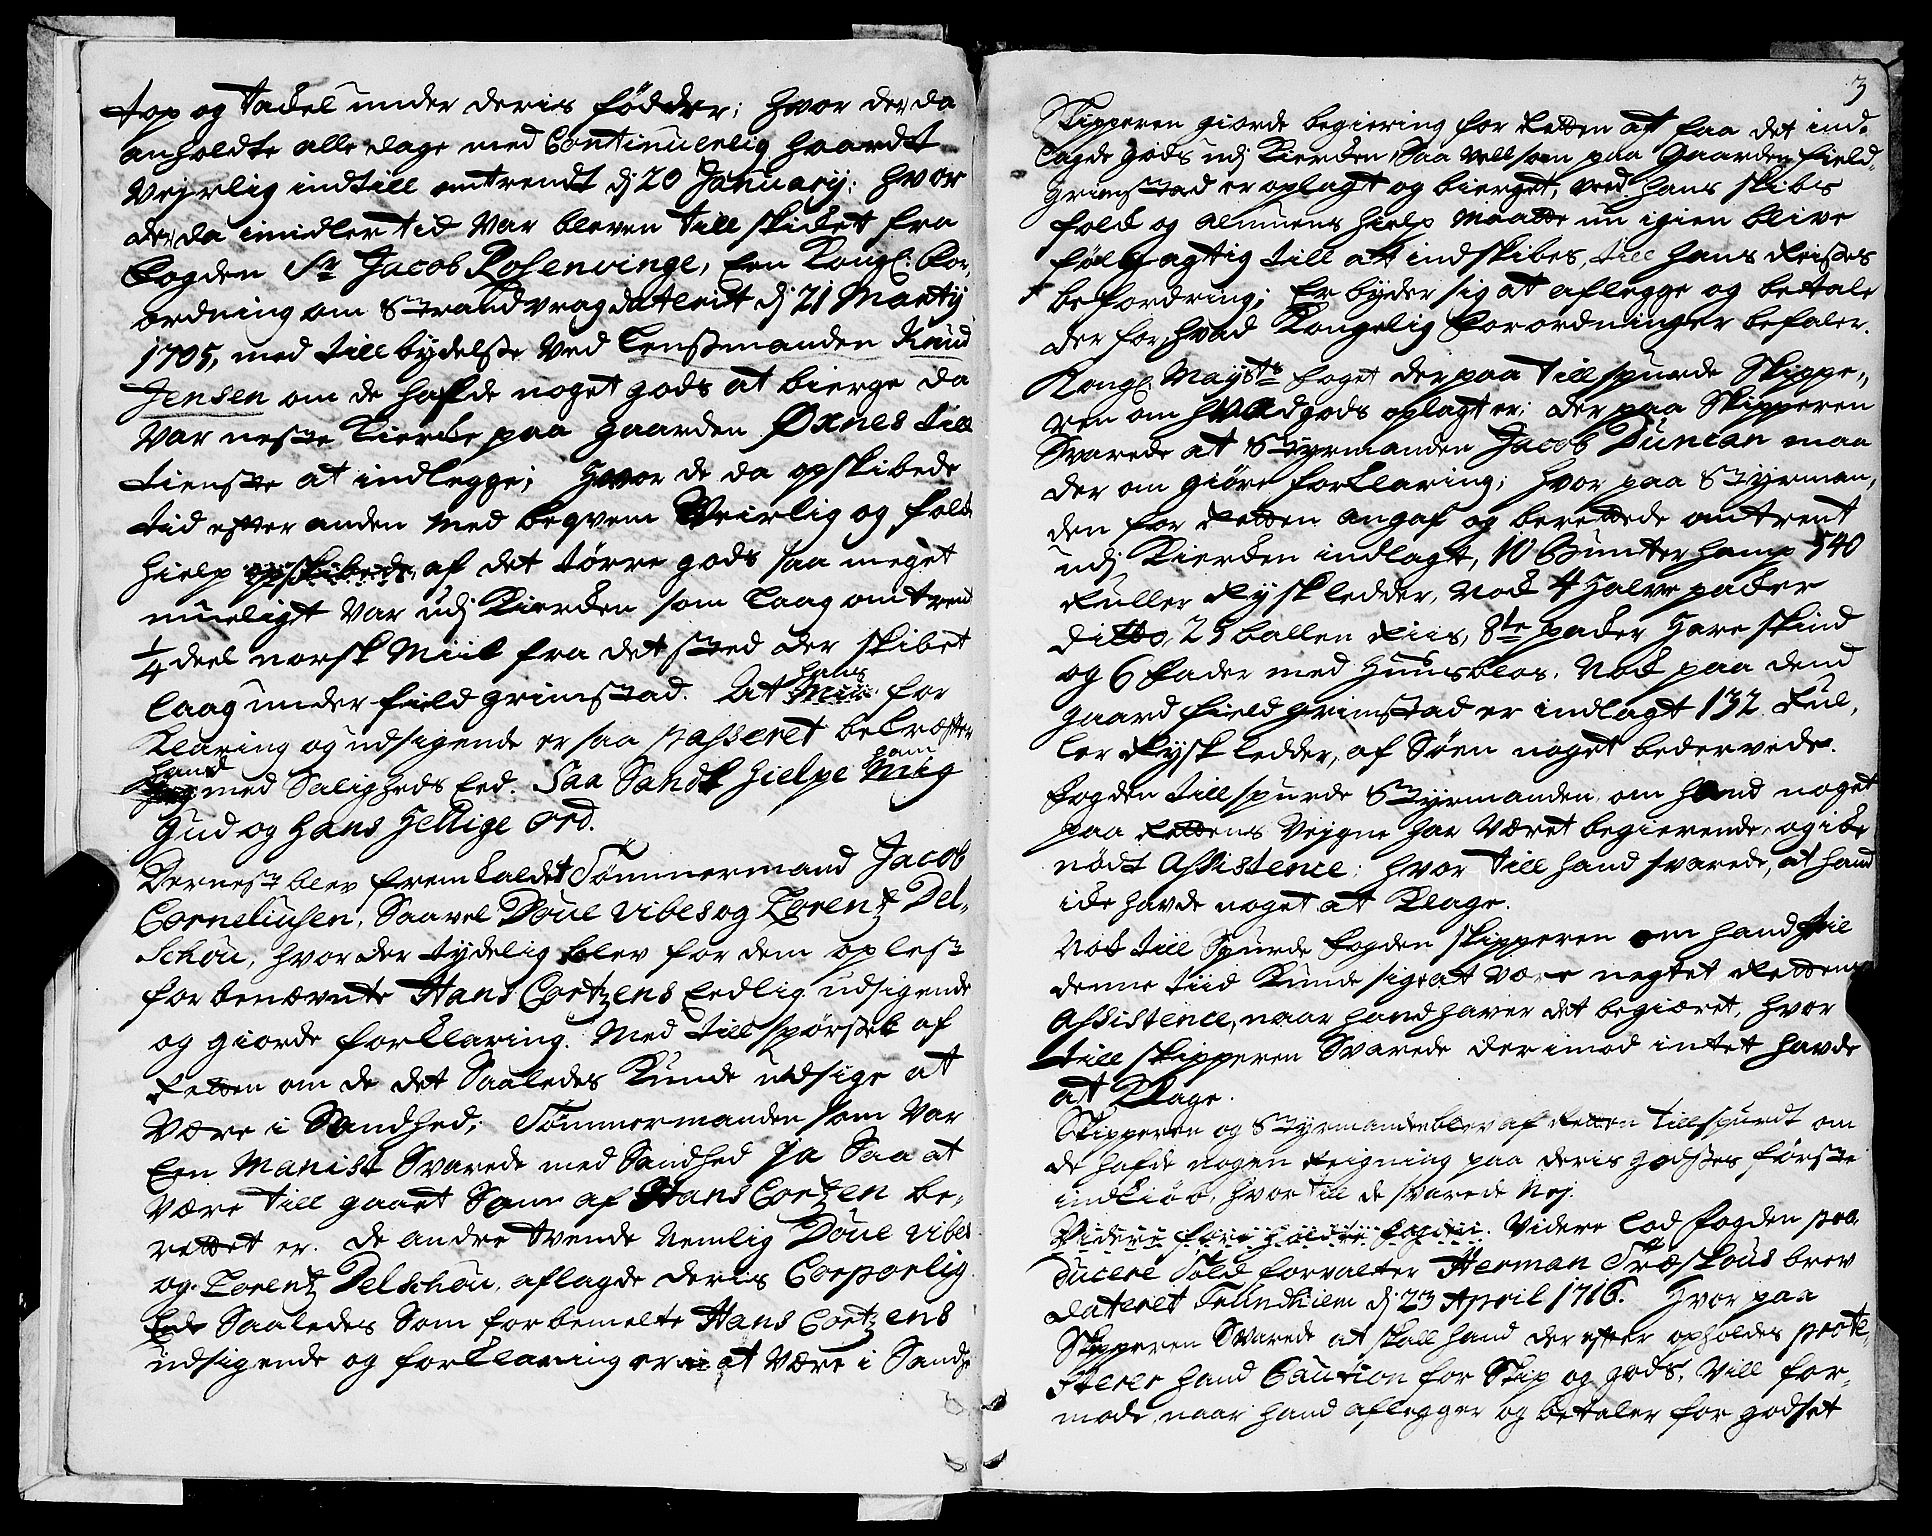 top og tackel under deris fødder; hvor der da
anholdte alle dage med Continuerlig haardt
Vejrlig indtill omtrendt dj 20 January; hvor
der da imidlertid var bleven tillskicket fra
Fogden Sr Jacob Rosenvinge, Een Kongl: For,
ordning om Strandvrag daterit dj 21 Marty
1705, med tillbydelse ved Lensmanden Knud
Jensen om de hafde noget gods at bierge da
var neste Kiercke paa gaarden Øxnes till
tieniste at indlegge; hvor de da opskibede
tid efter anden med beqvem Veirlig og folck
hielp opskibede af det tørre gods saa meget
mueligt var udj Kiercken som laag omtrent
1/4 deel norsk Miil fra det sted der skibet
laag under field grimstad. At hans for
Klaring og udsigende er saa passeret becræfter
hand med Saligheds Eed. Saa Sandt hielpe ham Mig
Gud og hans Hellige ord.
Dernest blev fremkaldet Tømmermand Jacob
Corneliusen, Saavel Doue vibes og Lorentz Del,
Schou, hvor der tydelig blev for dem oplest
forbenævnte Hans Coetzens Eedlig udsigende
og giorde forklaring. Med till spørsel af
Retten om de det Saaledes Kunde udsige at
være i Sandhed; Tømmermanden som var
Een Manist Svarede med Sandhed Ja Saa at
være till gaaet Som af Hans Coetzen be,
rettet er. de andre tvende Nemlig Doue vibes
og Lorentz Delschou, aflagde deris Corporlig
Eede Saaledes Som forbemelte Hans Coetzens
udsigende og forklaring er at være i Sandh
3
Skipperen giorde begiering for Retten at faa det ind,
lagde gods udj Kiercken Saa vell som paa Gaarden field,
grimstad er oplagt og bierget, med hans skibs
folck og Almuens hielp maatte nu igien blive
følgagtig till at indskibes, till hans Reises
befordring; Erbyder sig at aflegge og betale
der for, hvad Kongelig Forordninger befaler.
Kongl: Maysts foget der paa tillspurde Skippe,,
ren om hvad gods oplagt er; der paa Skipperen
Svarede at Styrmanden Jacob Duncan maa
der om giøre forklaring; hvor paa Styrman,
den for Retten angaf og berettede omtrent
udj Kiercken indlagt, 10 Bunter hamp 540
Ruller Rysk ledder, Nock 4 Halve packer
ditto, 25 ballen Riis, 8te packer Hare skind
og 6 Fader med Huusblos. Nock paa dend
gaard field grimstad er indlagt 132 Rul,
ler Rysk ledder, af Søen noget bedervede.
Fogden till spurde Styrmanden om hand noget
paa Rettens Vejgne har været begierende, og icke
nødt Assistence; hvor till hand svarede, at hand
icke havde noget at Klage.
Nock till Spurde Fogden skipperen om hand til
denne tiid Kunde sige at være negtet Rettens
Assistence, naar hand haver det begiæret, hvor
till skipperen Svarede derimod intet havde
at Klage.
Skipperen og Styrmanden blev af Retten tillspurdt om
de hafde nogen Reigning paa deris godses første
indkiøb, hvor till de svarede Nej.
Videre lod fogden pro
ducere Told forvalter Herman Træskous brev
dateret Trundhiem dj 23 April 1716. Hvor paa
Skipperen Svarede at skall hand der efter opholdes prote,
sterer hand Caution for Skip og gods, vill for,
mode, naar hand aflegger og betaler for godset